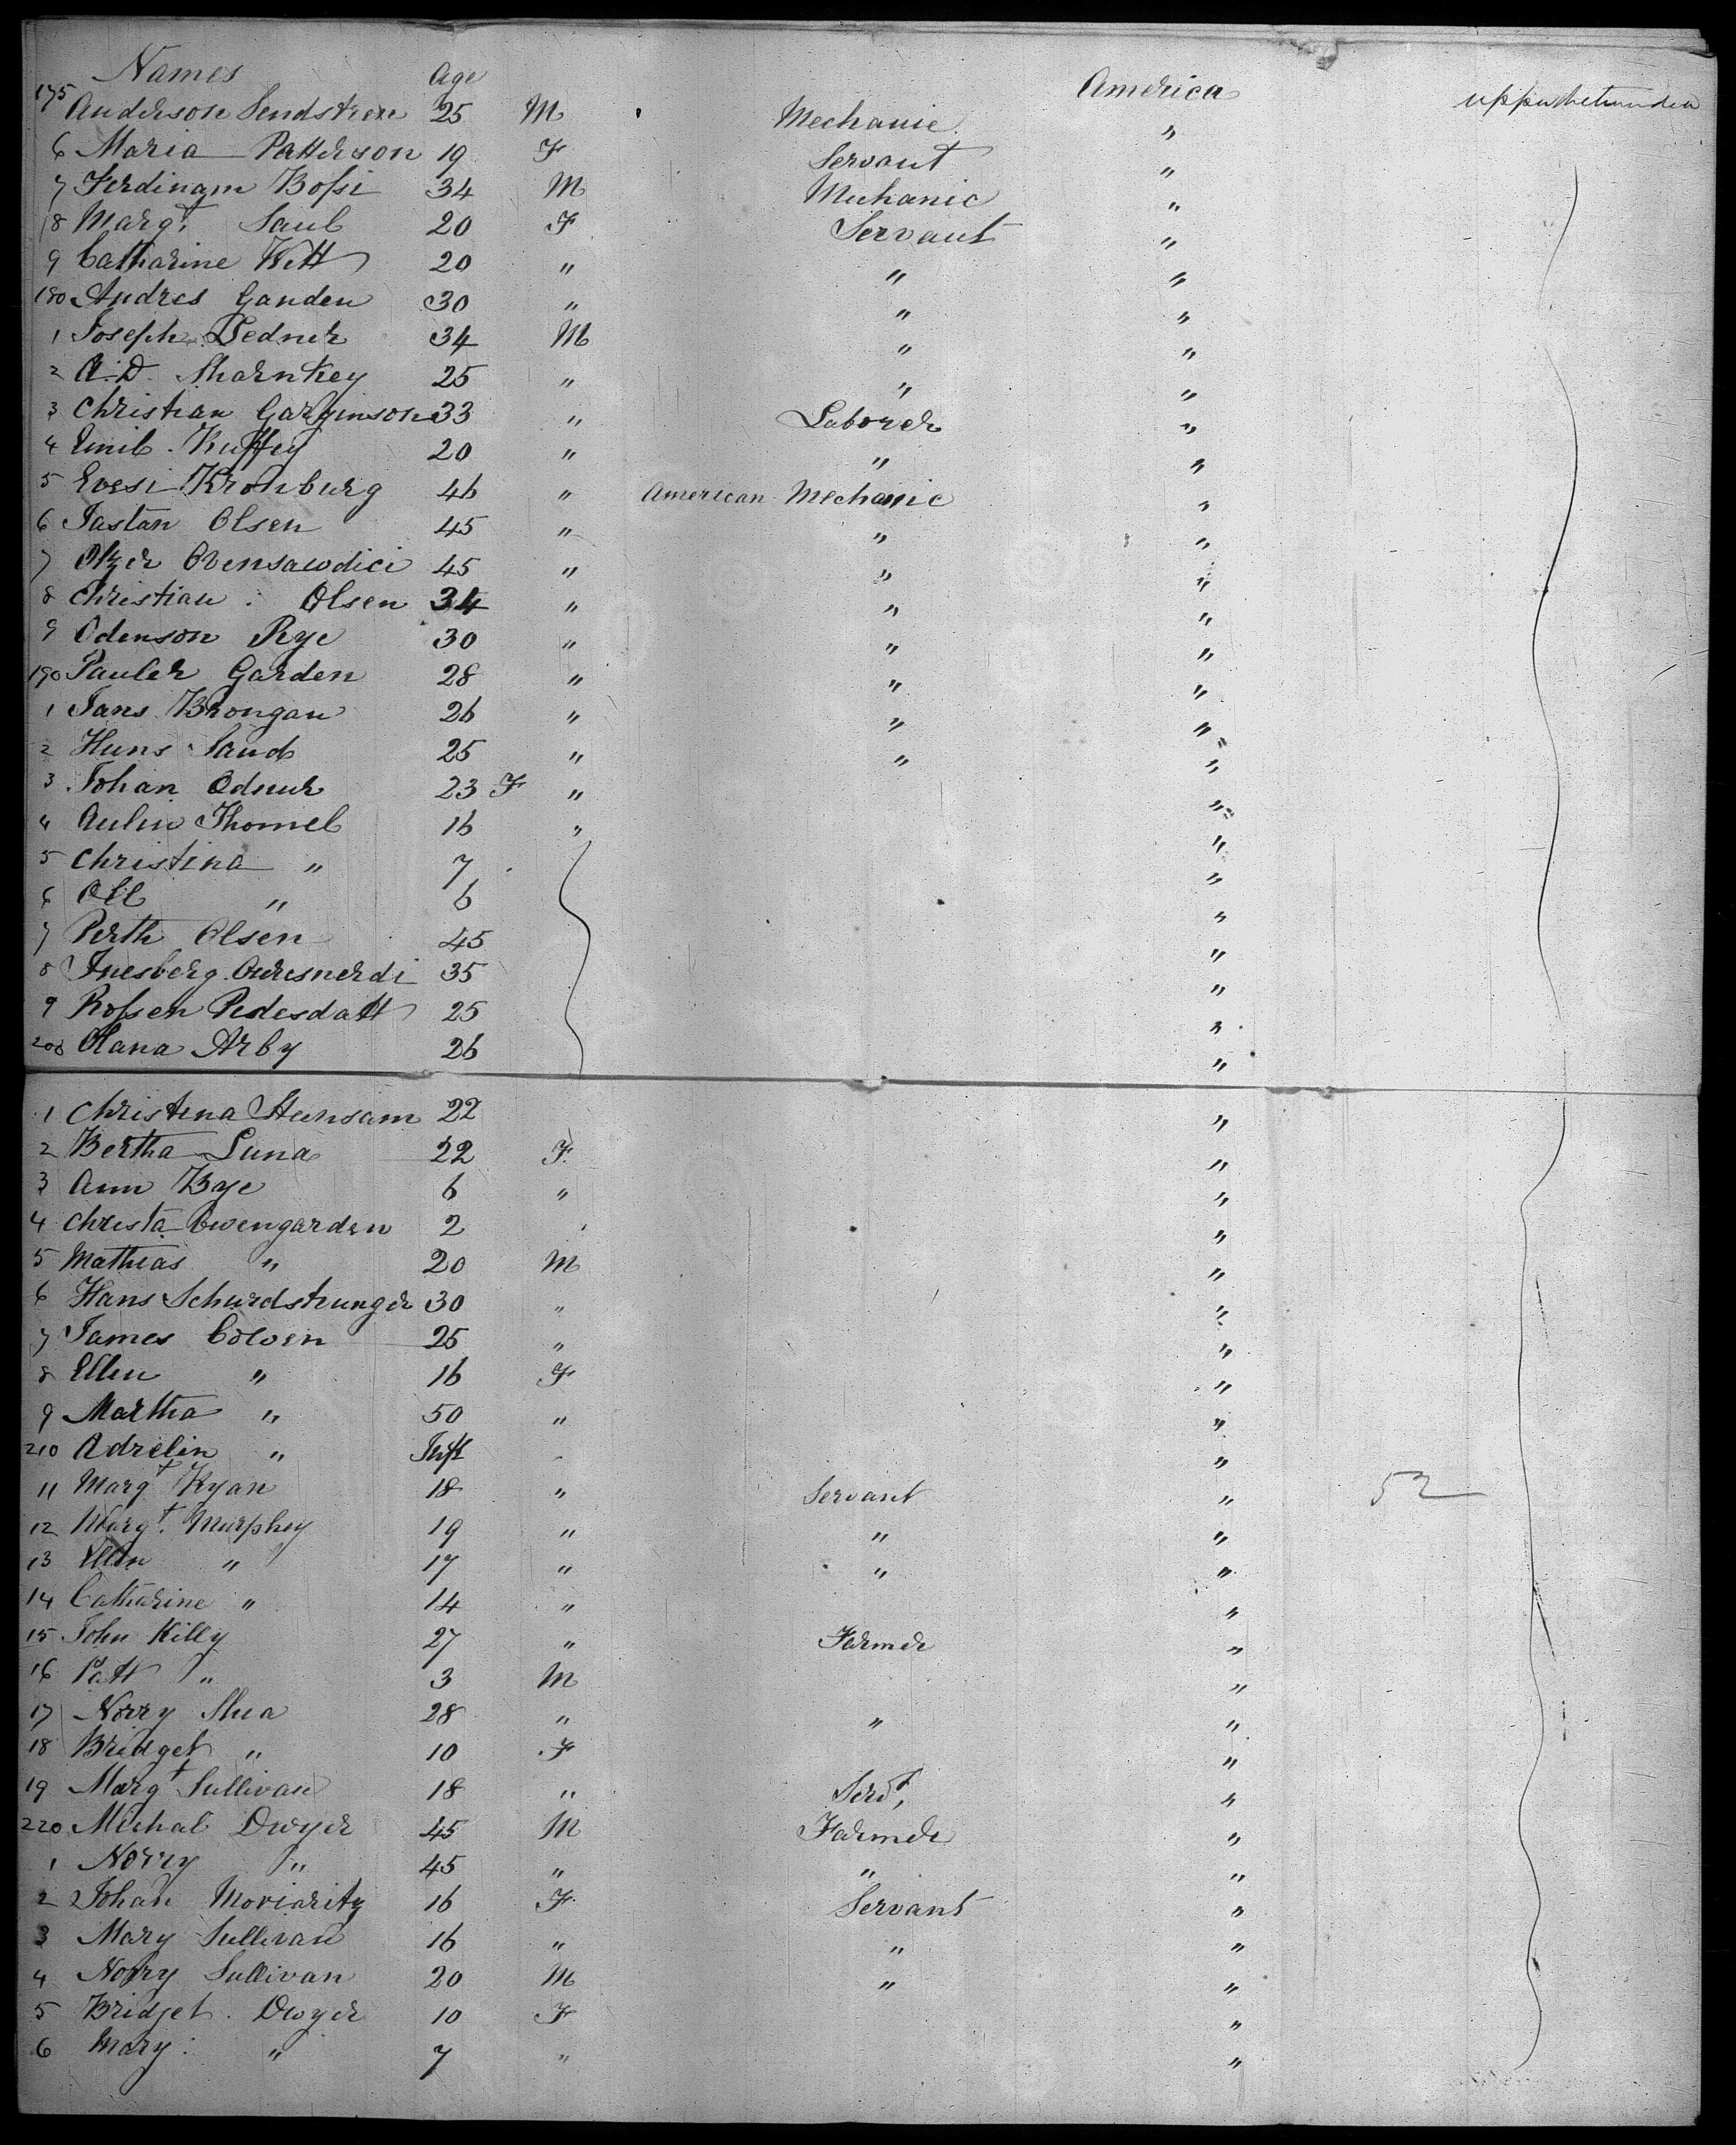 Names Age America
175 Anderson Sendstrom 25 M Mechanic "
6 Maria Patterson 19 F Servant "
7 Ferdinam Bossi 34 M Mechanic "
8 Margt. Saul 20 F Servant "
9 Catharine Witt 20 " " "
180 Andres Ganden 30 " " "
1 Joseph Ledner 34 M " "
2 A. D. Sharnkey 25 " " "
3 Christian Garginson 33 " Laborer "
4 Emil Kuffey 20 " " "
5 Evesi Kronburg 46 " American Mechanic "
6 Jastan Olsen 45 " " "
7 Ovensawdici 45 " " "
8 Christian Olsen 34 " " "
9 Odenson Rye 30 " " "
190 Pauler Garden 28 " " "
1 Jans Brongan 26 " " "
2 Huns Saud 25 " " "
3 Johan Odnur 23 F " "
4 Aulin Thomel 16 " "
5 Christina " 7 "
6 Oll " 6 "
7 Perth Olsen 45 "
8 Inesberg 35 "
9 Rossen Pedesdatt 25 "
200 Olana Arby 26 "
1 Christina Stensam 22 "
2 Bertha Luna 22 F "
3 Ann Bye 6 " "
4 Christa Owengarden 2 "
5 Mathias " 20 M "
6 Hans Schurdstrunger 30 " "
7 James Colven 25 " "
8 Ellen " 16 F "
9 Martha " 50 " "
210 Adrelin " Inft "
11 Margt Ryan 18 " Servant " 52
12 Margt. Murphey 19 " " "
13 Ellen " 17 " " "
14 Catharine " 14 " "
15 John Killy 27 " Farmer "
16 Patt " 3 M "
17 Norry Shea 28 " " "
18 Bridget " 10 F "
19 Margt Sullivan 18 " Servt, "
220 Michal Dwyer 45 M Farmer "
1 Norry " 45 " " "
2 Johan Moriarity 16 F Servant "
3 Mary Sullivan 16 " " "
4 Norry Sullivan 20 M " "
5 Bridget Dwyer 10 F "
6 Mary " 7 " "